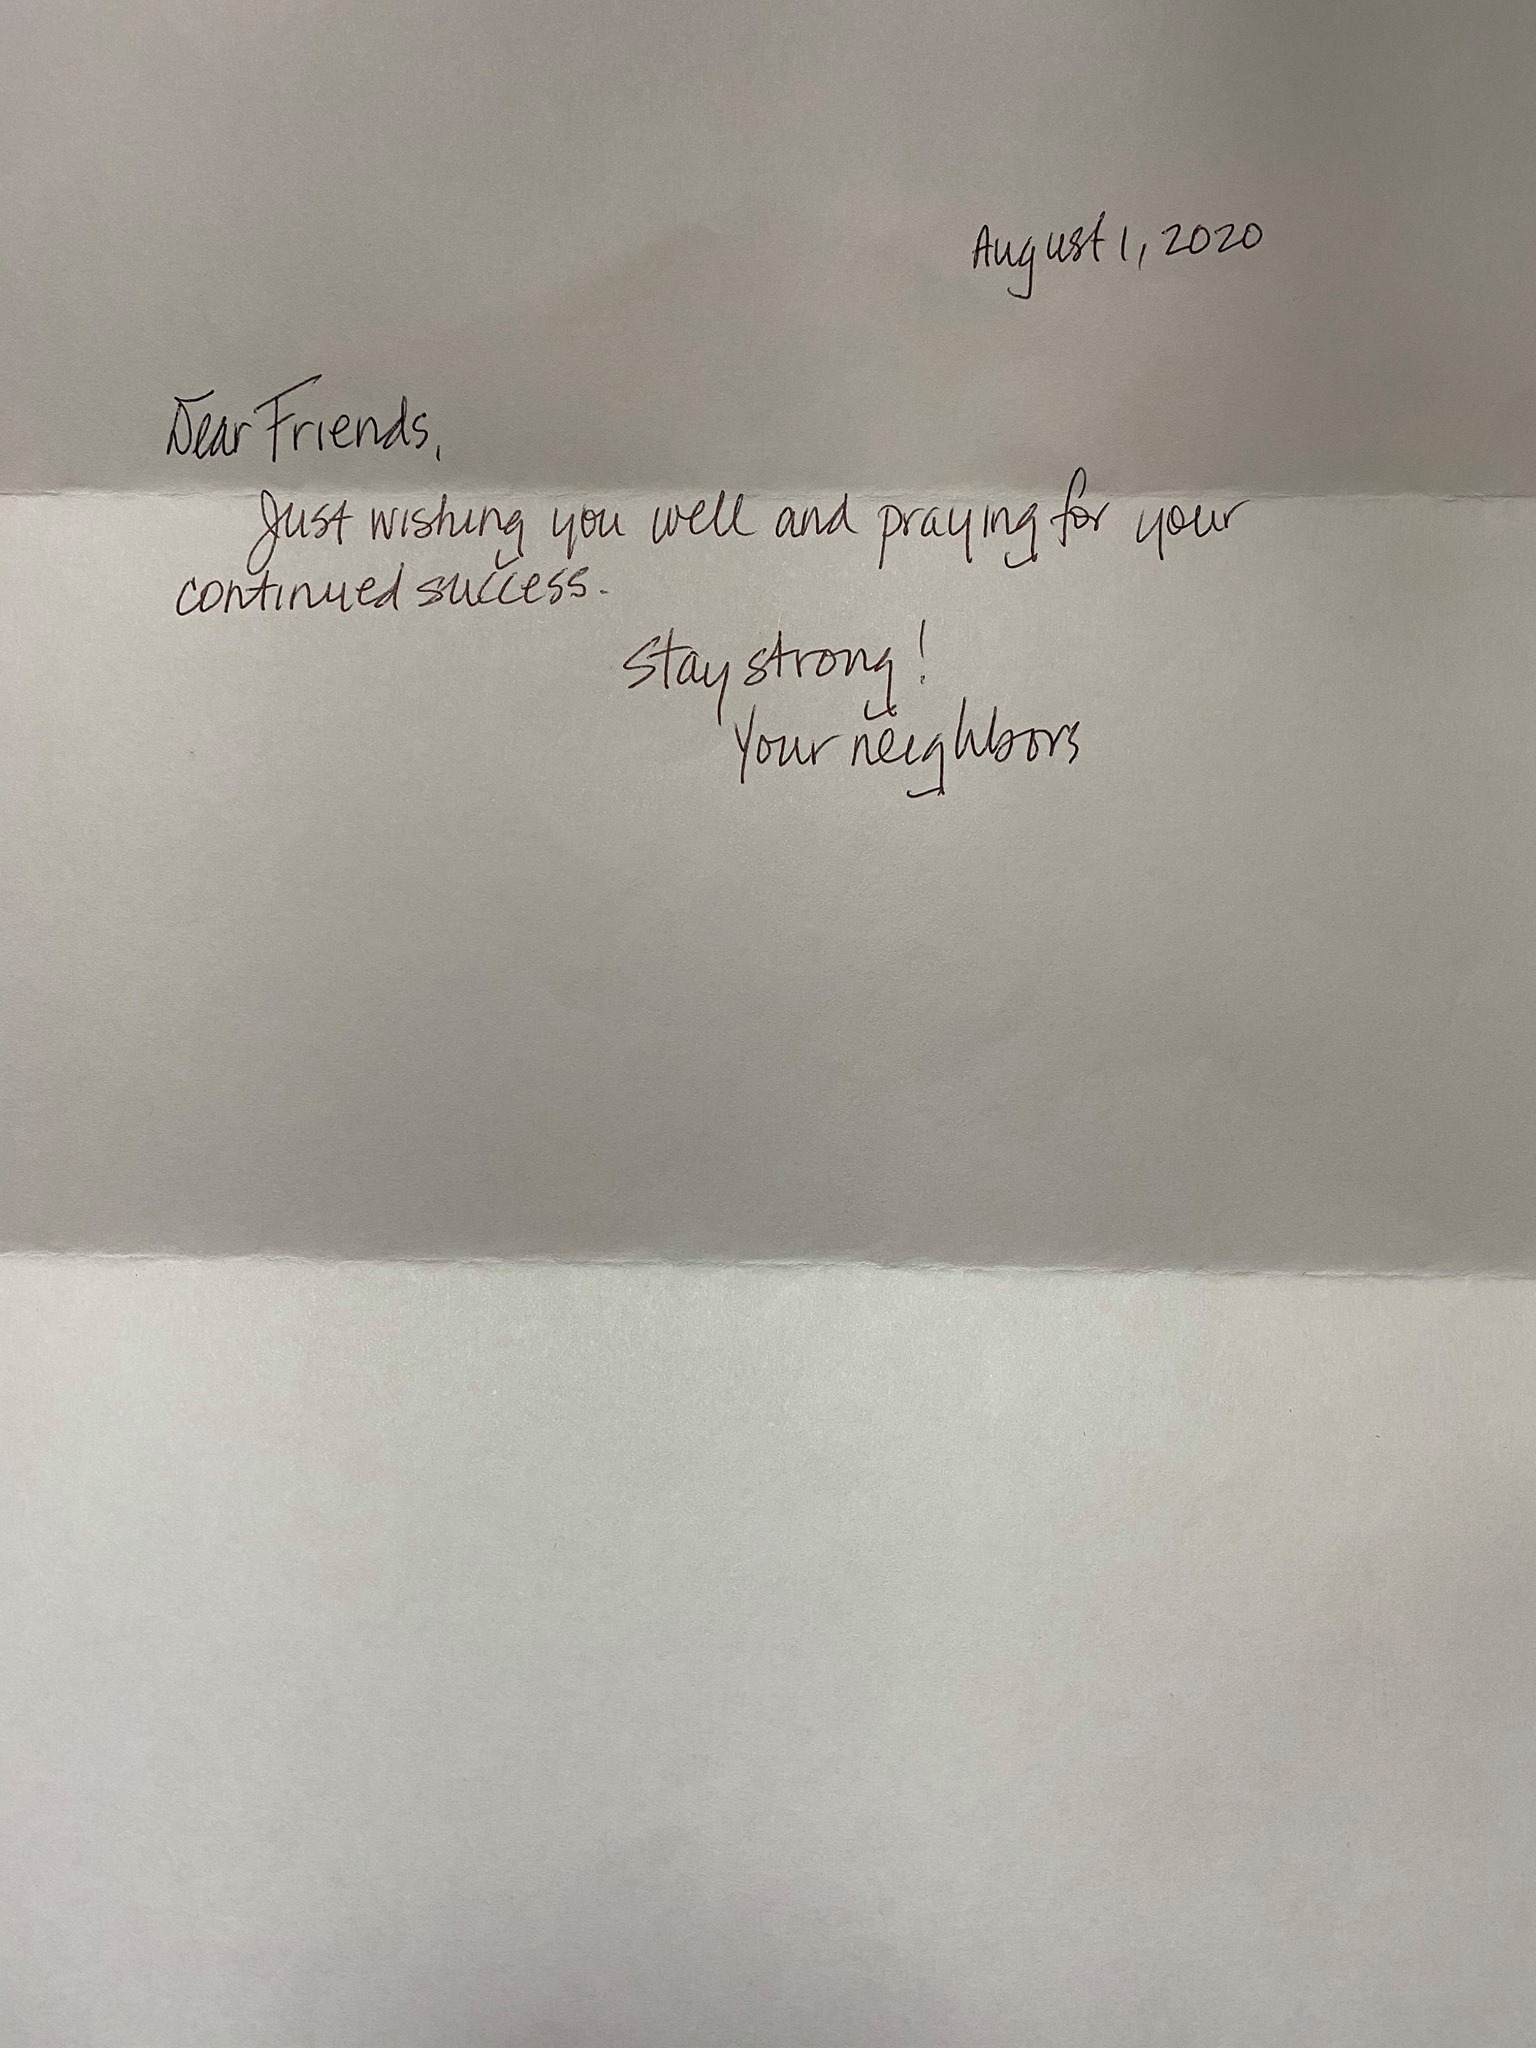 August 1, 2020
Dear Friends,
Just wishing you well and praying for your
continued success.
Stay strong!
Your neighbors